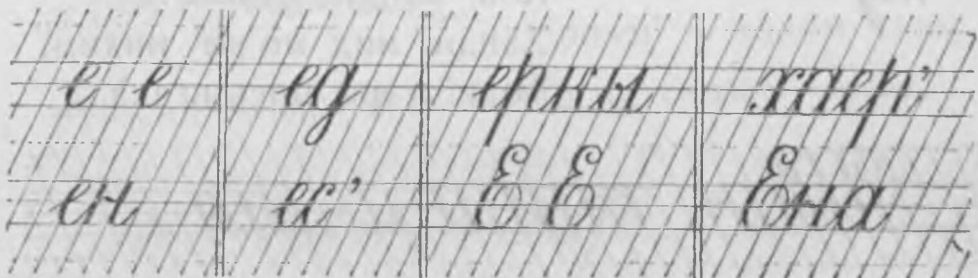 е е ед еркы хаер'
ен ес' Е Е Ена